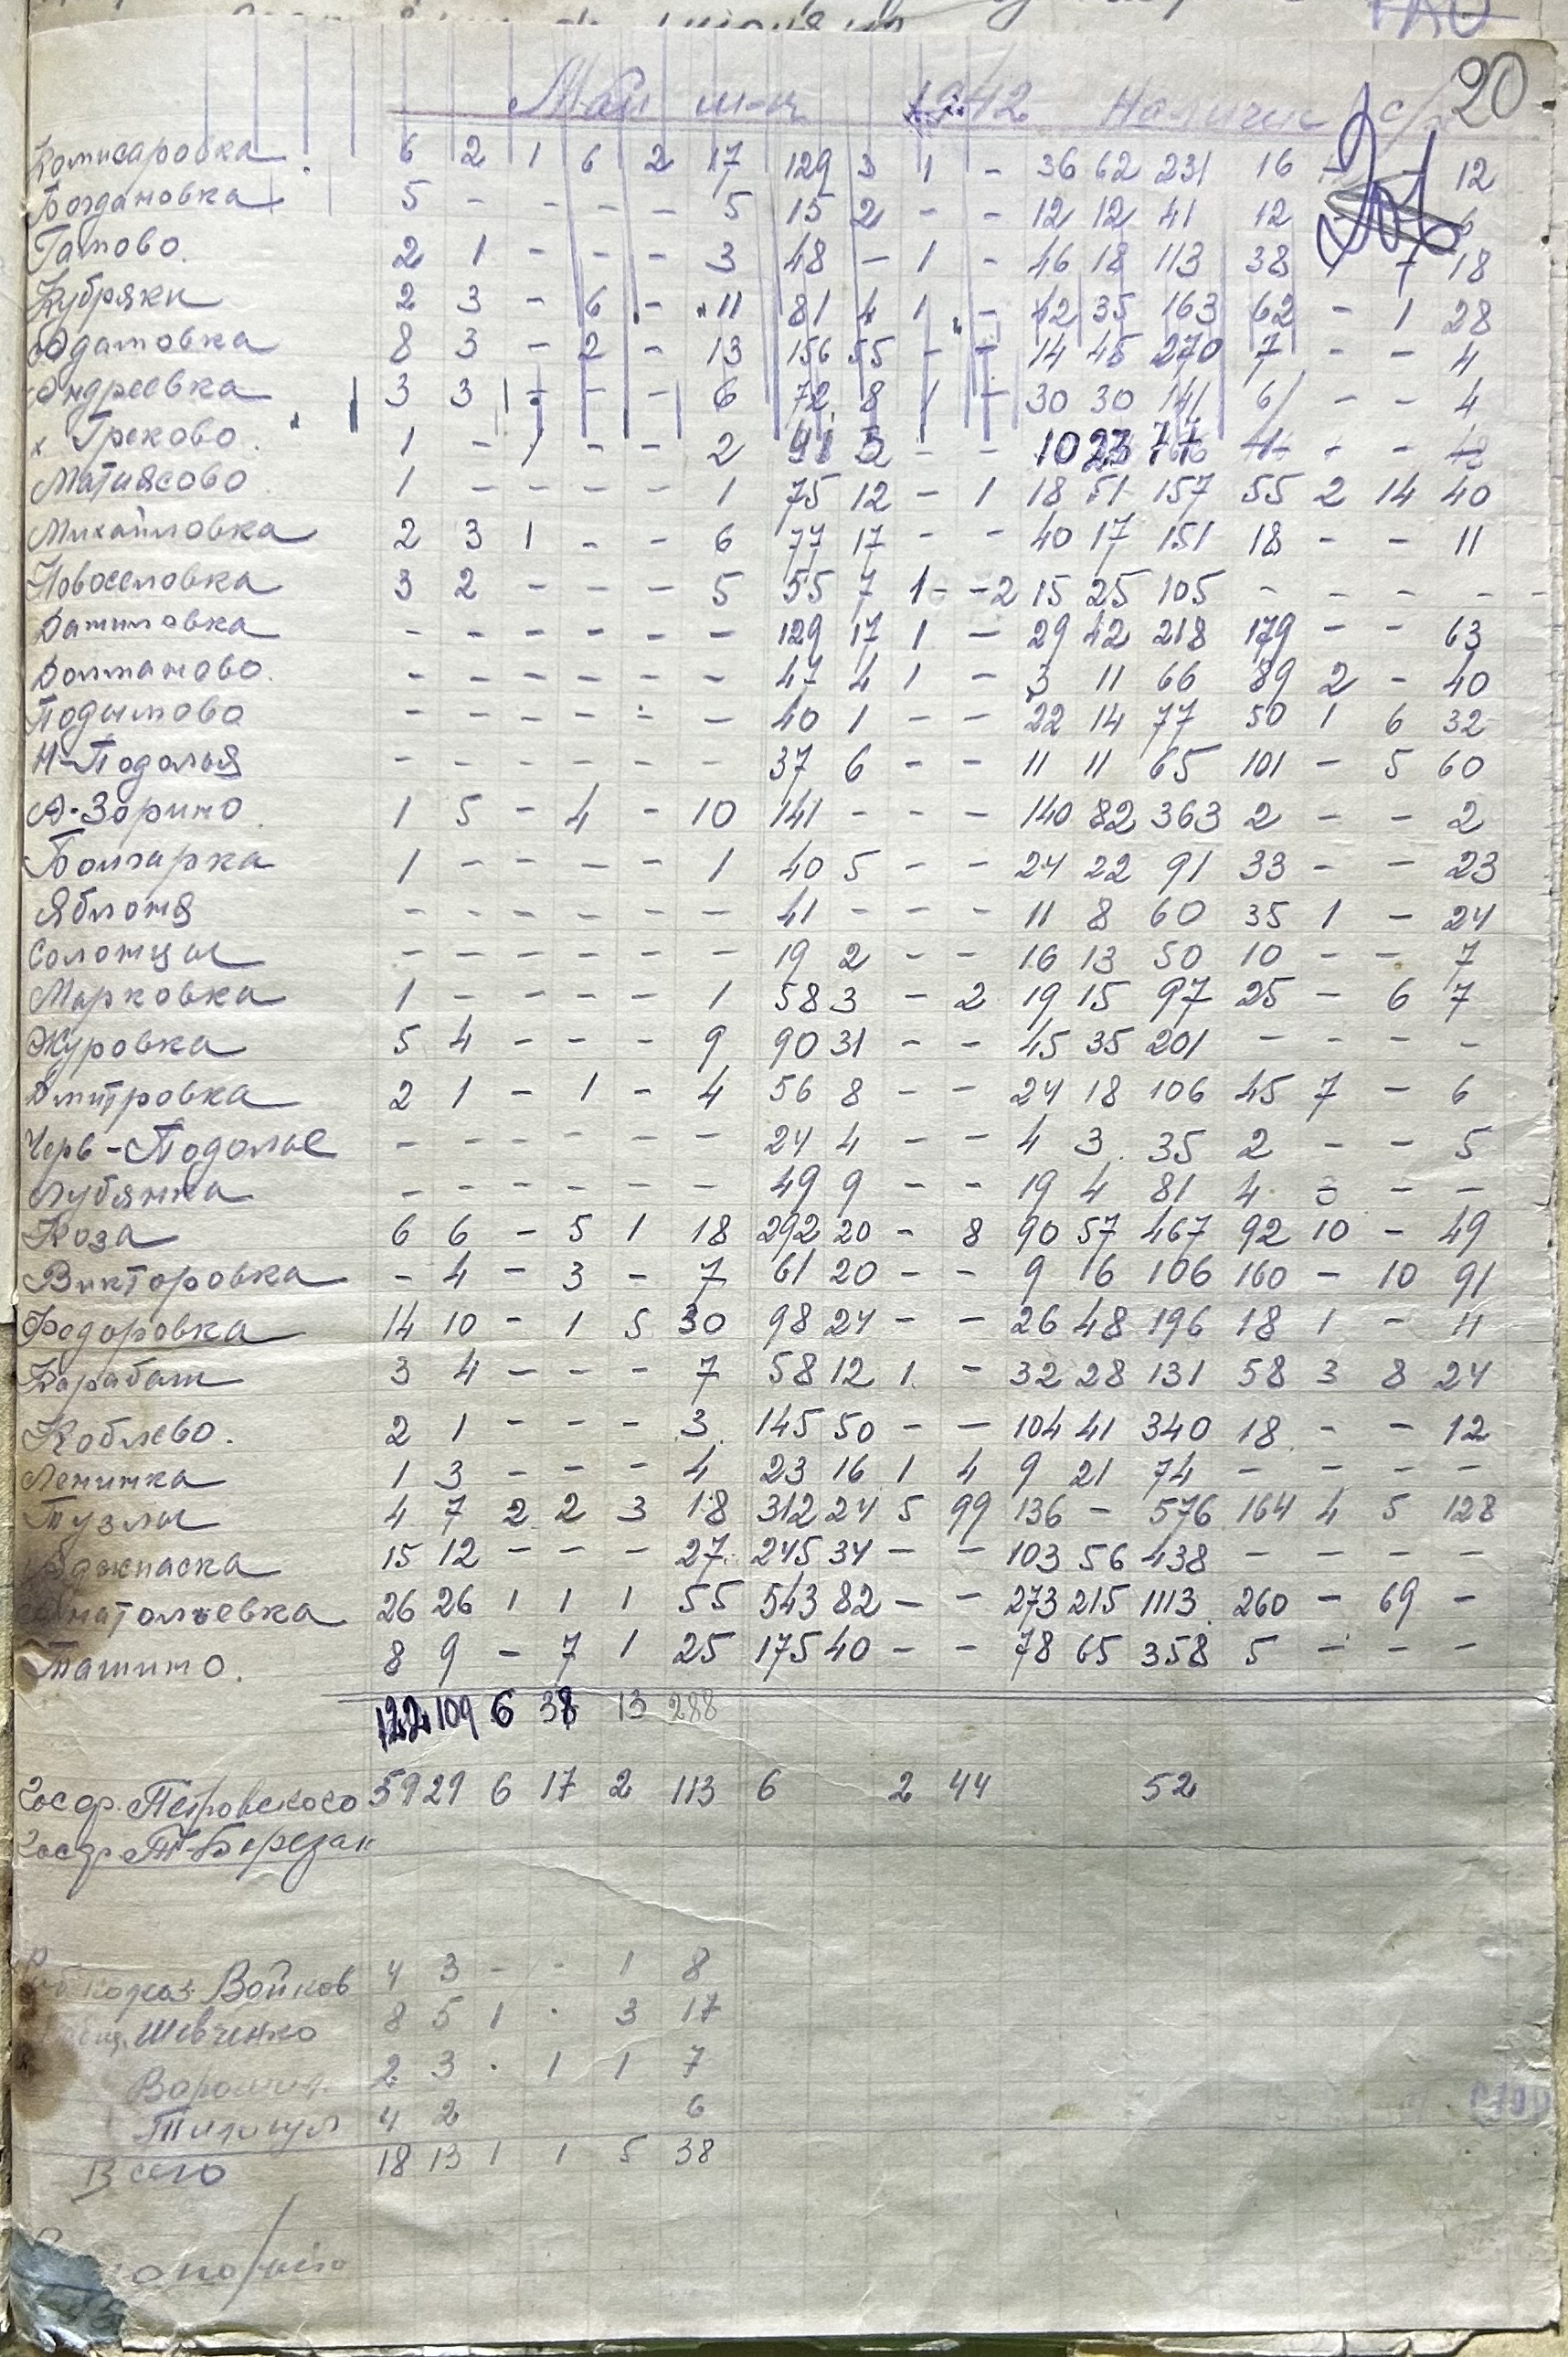 20
Май м-ц 1942 Наличие с/
Комисаровка 6 2 1 6 2 17 129 3 1 - 36 62 231 16 - 12
Богдановка 5 - - - - 5 15 2 - - 12 12 41 12 6
Гамово. 2 1 - - - 3 48 - 1 - 46 18 113 38 18
Кубряки 2 3 - 6 - 11 81 4 1 - 42 35 163 62 - 1 28
Адамовка 8 3 - 2 - 13 156 55 - - 14 45 270 7 - - 4
Андреевка 3 3 - - - 6 72 8 1 - 30 30 141 6 - - 4
х Греково. 1 - 1 - - 2 - - 10 23 77 - -
Матиясово 1 - - - - 1 75 12 - 1 18 51 157 55 2 14 40
Михайловка 2 3 1 - - 6 77 17 - - 40 17 151 18 - - 11
Новоселовка 3 2 - - - 5 55 7 1 - - 2 15 25 105 - - - - -
Даниловка - - - - - - 129 17 1 - 29 42 218 179 - - 63
Долманово. - - - - - - 47 4 1 - 3 11 66 89 2 - 40
Подымово - - - - - - 40 1 - - 22 14 77 50 1 6 32
Н-Подолья - - - - - - 37 6 - - 11 11 65 101 - 5 60
А-Зорино 1 5 - 4 - 10 141 - - - 140 82 363 2 - - 2
Болгарка 1 - - - - 1 40 5 - - 24 22 91 33 - - 23
Яблоня - - - - - - 41 - - - 11 8 60 35 1 - 24
Солонцы - - - - - - 19 2 - - 16 13 50 10 - - 7
Марковка 1 - - - - 1 58 3 - 2 19 15 97 25 - 6 7
Журовка 5 4 - - - 9 90 31 - - 45 35 201 - - - -
Дмитровка 2 1 - 1 - 4 56 8 - - 24 18 106 45 7 - 6
Черв-Подолье - - - - - - 24 4 - - 4 3 35 2 - - 5
Лубянка - - - - - - 49 9 - - 19 4 81 4 - - -
Коза 6 6 - 5 1 18 292 20 - 8 90 57 467 92 10 - 49
Викторовка - 4 - 3 - 7 61 20 - - 9 16 106 160 - 10 91
Федоровка 14 10 - 1 5 30 98 24 - - 26 48 196 18 1 - 11
Карабаш 3 4 - - - 7 58 12 1 - 32 28 131 58 3 8 24
Коблево. 2 1 - - - 3 145 50 - - 104 41 340 18 - - 12
Ленинка 1 3 - - - 4 23 16 1 4 9 21 74 - - - -
Тузлы 4 7 2 2 3 18 312 24 5 99 136 - 576 164 4 5 128
Аджиаска 15 12 - - - 27 245 34 - - 103 56 438 - - - -
Анатольевка 26 26 1 1 1 55 543 82 - - 273 215 1113 260 - 69 -
Ташино. 8 9 - 7 1 25 175 40 - - 78 65 358 5 - - -
122 109 6 38 13 288
Госф. Петровского 59 29 6 17 2 113 6 2 44 52
Госф. Т-Березан
колхоз Войков 4 3 - - 1 8
Шевченко 8 5 1 · 3 17
Ворошил. 2 3 · 1 1 7
Тилигул 4 2 6
Всего 18 13 1 1 5 38